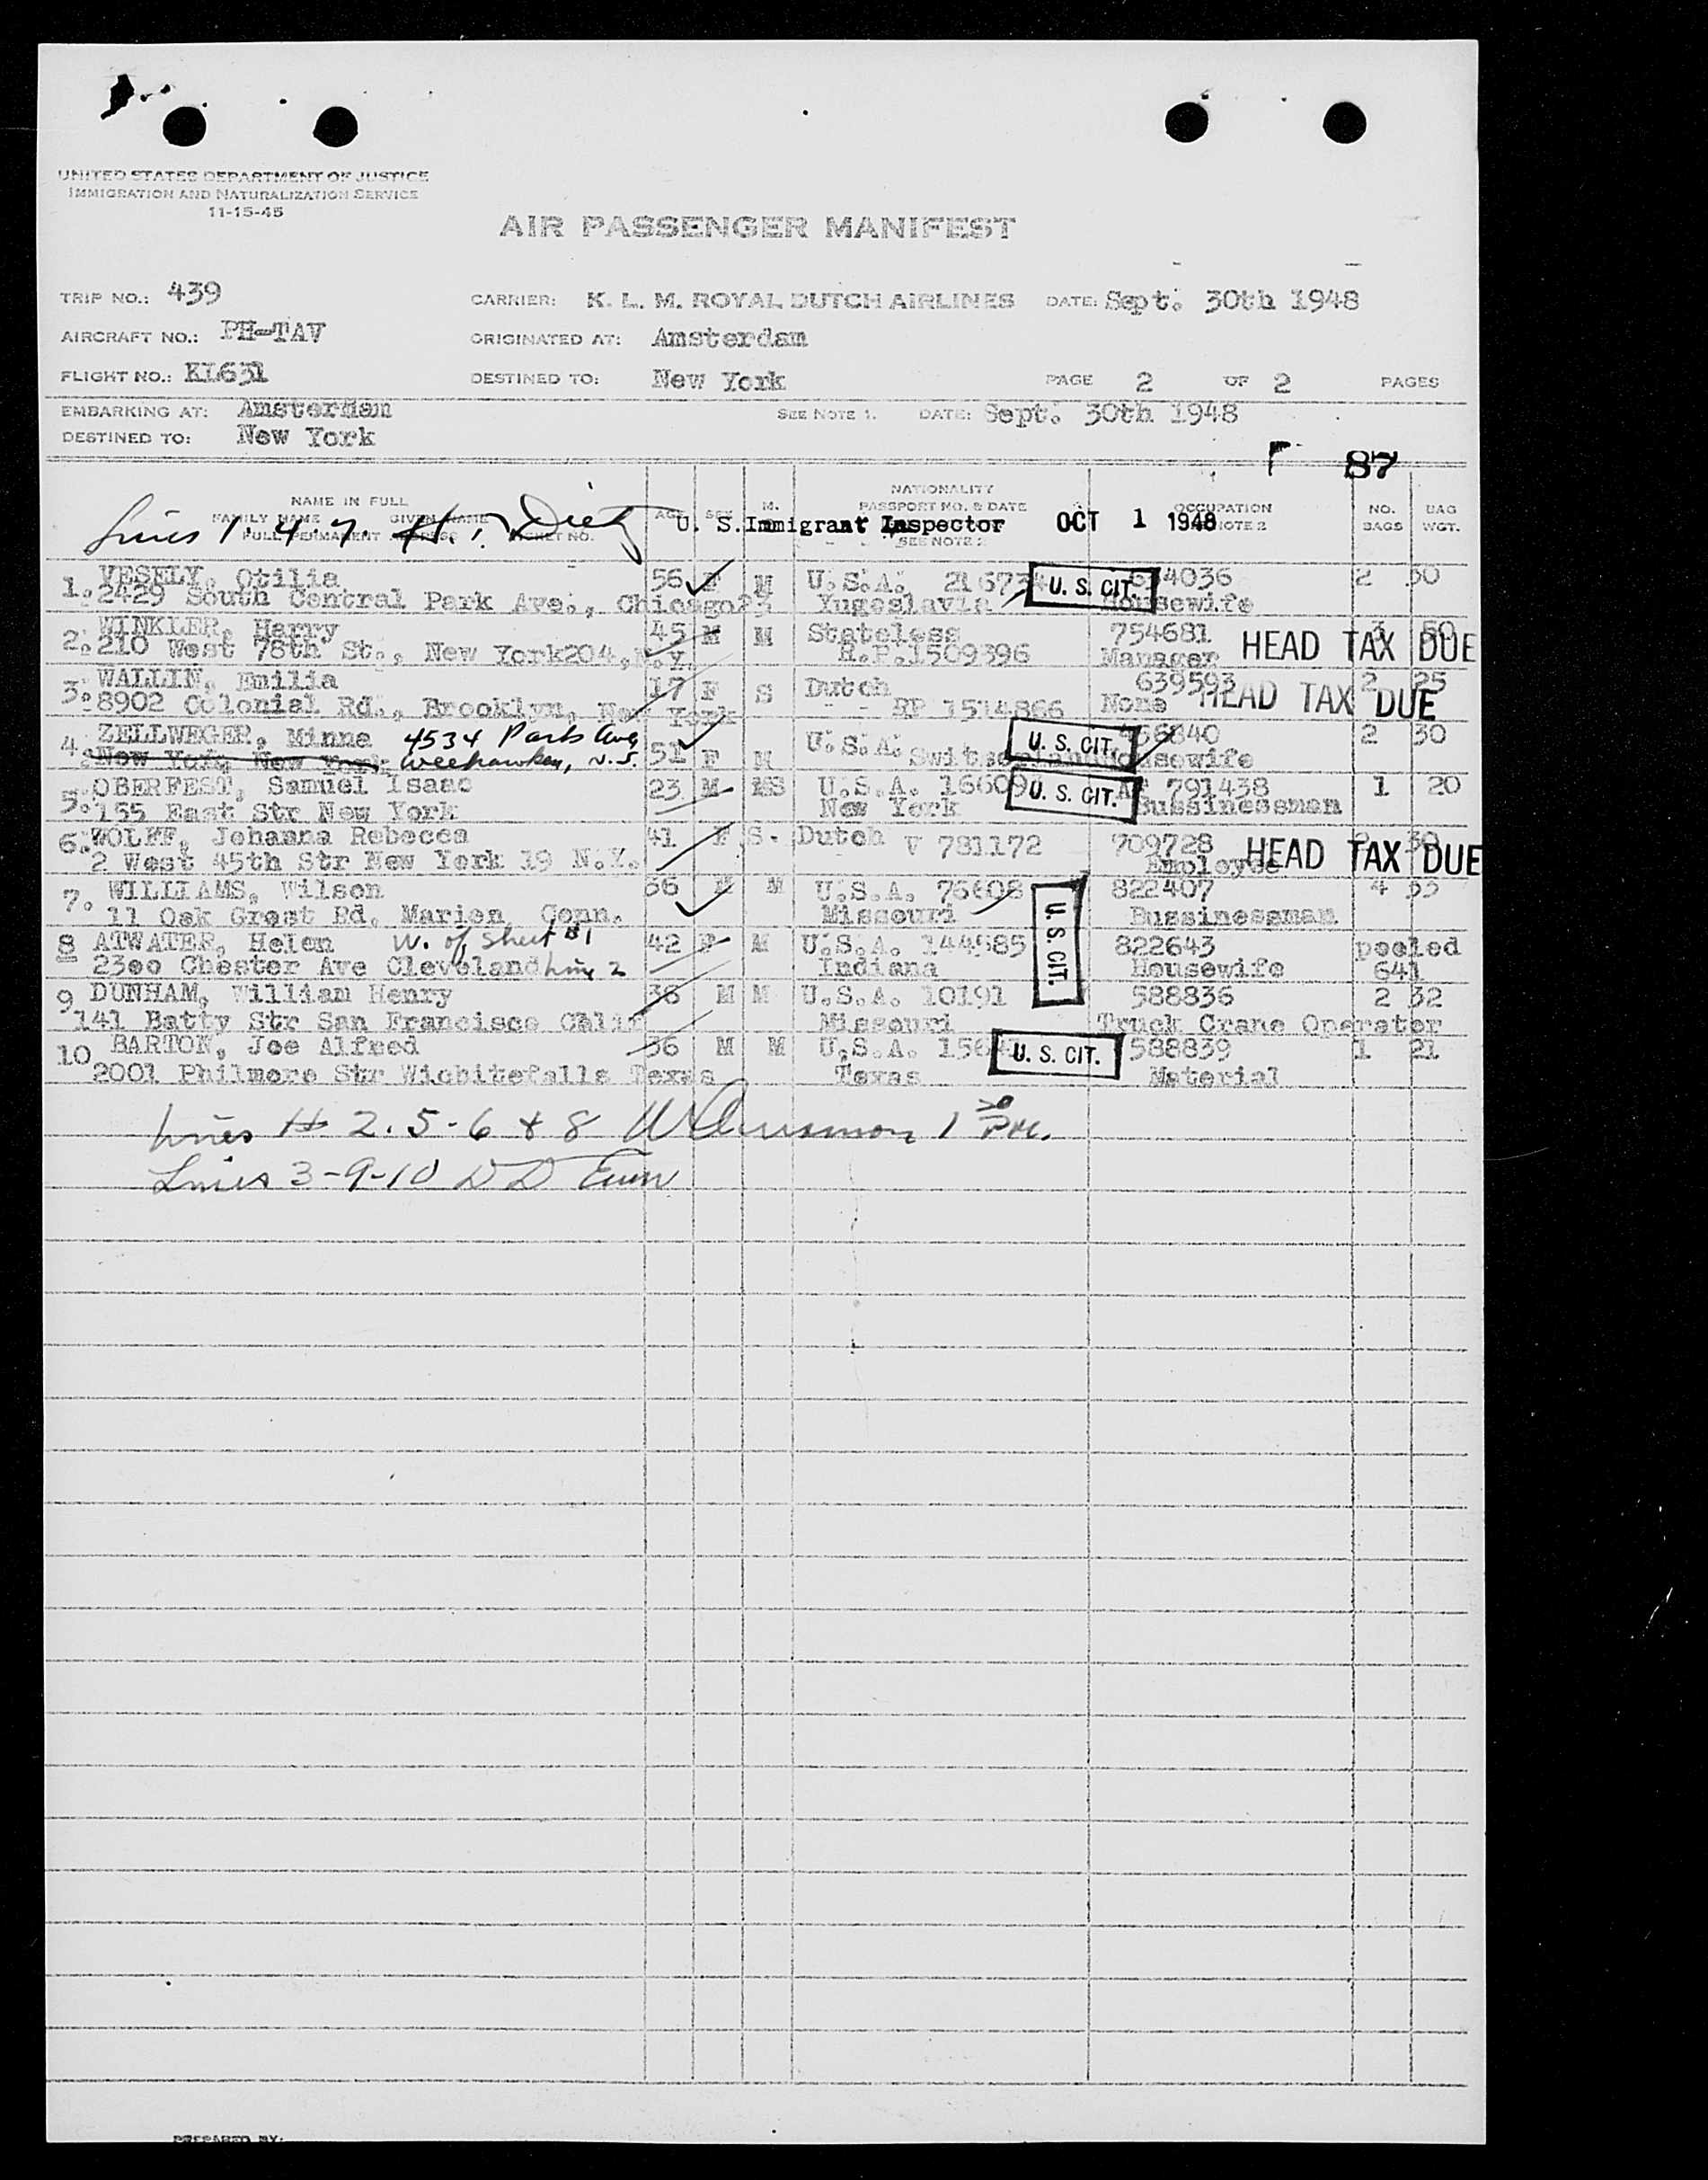 UNITED STATES DEPARTMENT OF JUSTICE
IMMIGRATION AND NATURALIZATION SERVICE
11-15-45
AIR PASSENGER MANIFEST
TRIP NO.: 439 CARRIER: K. L. M. ROYAL DUTCH AIRLINES DATE: Sept. 30th 1948
AIRCRAFT NO.: PH-TAV ORIGINATED AT: Amsterdam
FLIGHT NO.: KL631 DESTINED TO: New York PAGE 2 OF 2 PAGES
EMBARKING AT: Amsterdam SEE NOTE 1. DATE: Sept. 30th 1948
DESTINED TO: New York
87
NAME IN FULL NATIONALITY
FAMILY NAME GIVEN NAME AGE SEX M. PASSPORT NO. & DATE OCCUPATION NO. BAG
FULL PERMANENT ADDRESS TICKET NO. SEE NOTE 2 NOTE 2 BAGS WGT.
Lines 1. 4. 7. H. Dietz U. S. Immigrant Inspector OCT 1 1948
1. VESELY, Otilia 56 F M U.S.A. 21673 U. S. CIT. 4036 2 30
2429 South Central Park Ave., Chicago23 Yugoslavia Housewife
2. WINKLER, Harry 45 M M Stateless 754681 3 50
210 West 78th St., New York204, N.Y. R.P.1509396 Manager HEAD TAX DUE
3. WALLIN, Emilia 17 F S Dutch 639593 2 25
8902 Colonial Rd., Brooklyn, New York RP 1514866 None HEAD TAX DUE
4. ZELLWEGER, Minne 4534 Park Ave 51 F M U.S.A. U. S. CIT. 56840 2 30
New York, New York Weehawken, N.J. Switzerland Housewife
5. OBERFEST, Samuel Isaac 23 M MS U.S.A. 16609 U. S. CIT. 791438 1 20
155 East Str New York New York Bussinessman
6. WOLFF, Johanna Rebecca 41 F S. Dutch V 781172 709728 2 30
2 West 45th Str New York 19 N.Y. Employee HEAD TAX DUE
7. WILLIAMS, Wilson 56 M M U.S.A. 76608 U. S. CIT. 822407 4 55
11 Oak Grest Rd, Marion, Conn. Missouri Bussinessman
8 ATWATER, Helen W. of Sheet #1 42 F M U.S.A. 144585 822643 pooled
2300 Chester Ave Cleveland Line 2 Indiana Housewife 641
9 DUNHAM, William Henry 38 M M U.S.A. 10191 588836 2 32
141 Batty Str San Francisco Calif Missouri Truck Crane Operator
10 BARTON, Joe Alfred 36 M M U.S.A. 156 U. S. CIT. 588839 1 21
2001 Philmore Str Wichitefalls Texas Texas Material
Lines 2. 5-6 & 8
Lines 3-9-10 D D
PREPARED BY: